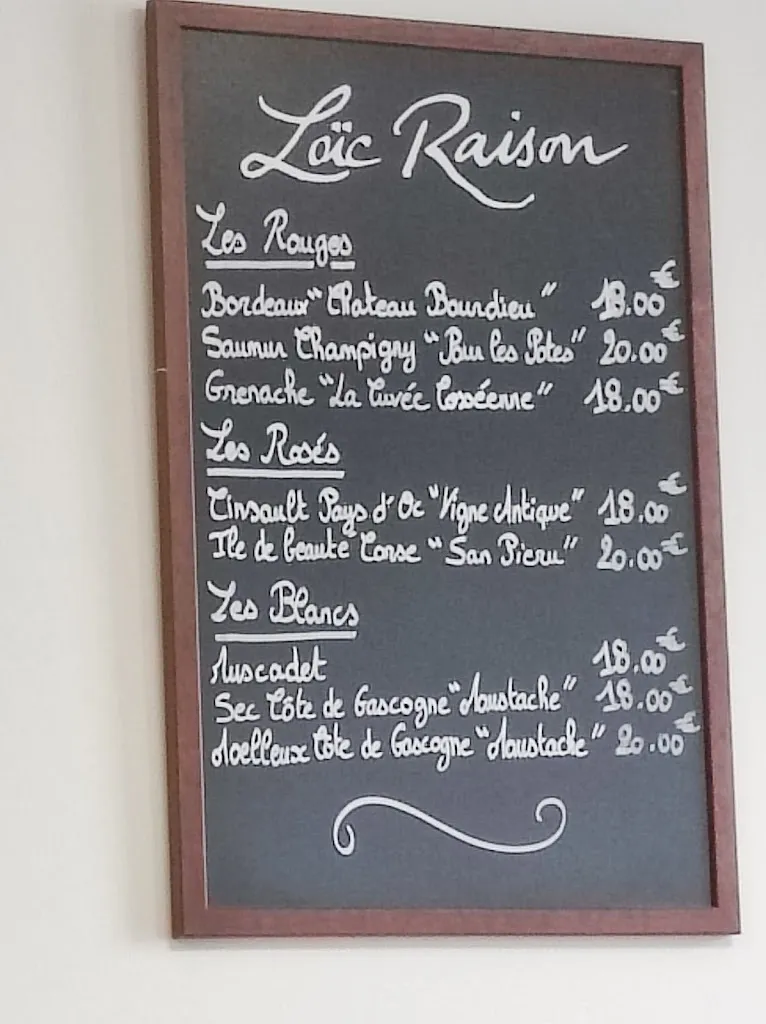 Loïc Raison
Les Rouges
Bordeaux "Chateau Bourdieu" 18.00€
Saumur Champigny "Pour les Potes" 20.00€
Grenache "La Cuvée Cosséenne" 18.00€
Les Rosés
Cinsault Pays d'Oc "Vigne Antique" 18.00€
Ile de beauté Corse "San Pieru" 20.00€
Les Blancs
Muscadet 18.00€
Sec Côte de Gascogne "Moustache" 18.00€
Moelleux Côte de Gascogne "Moustache" 20.00€